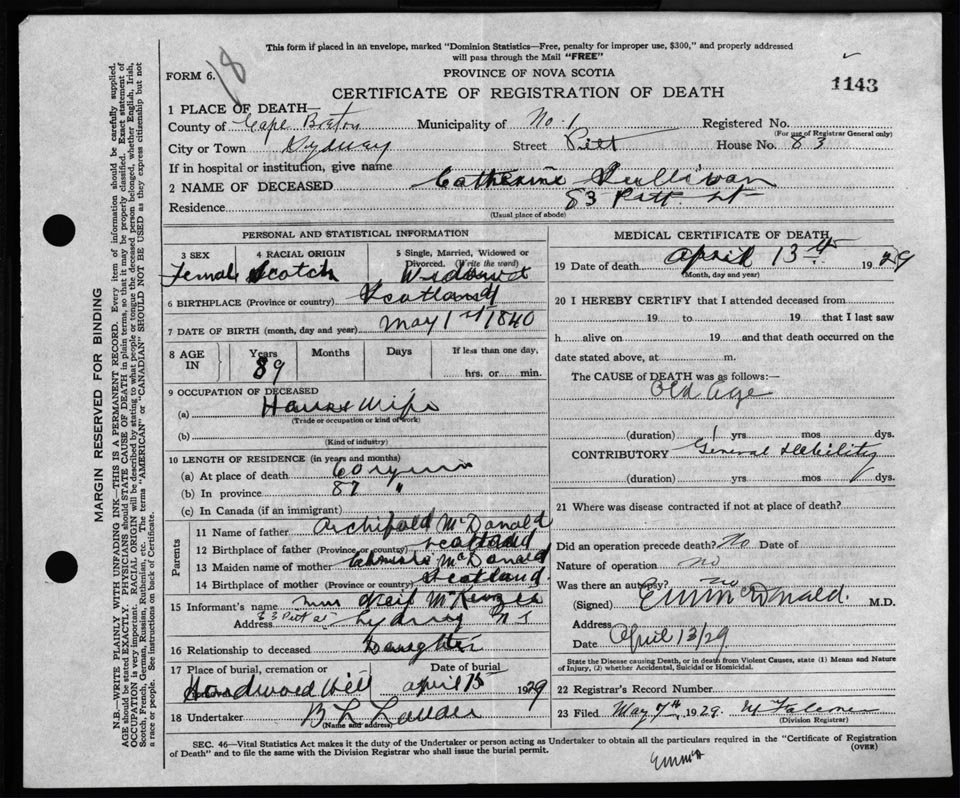 This form if placed in an envelope, marked "Dominion Statistics—Free, penalty for improper use, $300," and properly addressed
will pass through the Mail "FREE"
FORM 6.
18
PROVINCE OF NOVA SCOTIA
CERTIFICATE OF REGISTRATION OF DEATH
1143
1 PLACE OF DEATH—
County of Cape Breton Municipality of No. 1 Registered No.
(For use of Registrar General only)
City or Town Sydney Street Pitt House No. 83
If in hospital or institution, give name
2 NAME OF DECEASED Catherine Sullivan
Residence 83 Pitt St
(Usual place of abode)
PERSONAL AND STATISTICAL INFORMATION
3 SEX 4 RACIAL ORIGIN 5 Single, Married, Widowed or Divorced. (Write the word)
Female Scotch Widowed
6 BIRTHPLACE (Province or country) Scotland
7 DATE OF BIRTH (month, day and year) May 1st 1840
8 AGE IN Years Months Days If less than one day,
89 hrs. or min.
9 OCCUPATION OF DECEASED
(a) House Wife
(Trade or occupation or kind of work)
(b)
(Kind of industry)
10 LENGTH OF RESIDENCE (in years and months)
(a) At place of death 60 years
(b) In province 87 "
(c) In Canada (if an immigrant)
Parents
11 Name of father Archibald McDonald
12 Birthplace of father (Province or country) Scotland
13 Maiden name of mother McDonald
14 Birthplace of mother (Province or country) Scotland.
15 Informant's name Mrs Neil McKenzie
Address 83 Pitt St Sydney N S
16 Relationship to deceased Daughter
17 Place of burial, cremation or Date of burial
Hardwood Hill April 15 1929
18 Undertaker B L
(Name and address)
MEDICAL CERTIFICATE OF DEATH
19 Date of death April 13th 1929
(Month, day and year)
20 I HEREBY CERTIFY that I attended deceased from
19 to 19 that I last saw
h alive on 19 and that death occurred on the
date stated above, at m.
The CAUSE of DEATH was as follows:—
Old Age
(duration) 1 yrs mos dys.
CONTRIBUTORY General Debility
(duration) yrs mos dys.
21 Where was disease contracted if not at place of death?
Did an operation precede death? No Date of
Nature of operation no
Was there an autopsy? no
(Signed) McDonald. M.D.
Address
Date April 13/29
State the Disease causing Death, or in death from Violent Causes, state (1) Means and Nature
of Injury, (2) whether Accidental, Suicidal or Homicidal.
22 Registrar's Record Number
23 Filed May 7th, 1929.
(Division Registrar)
SEC. 46—Vital Statistics Act makes it the duty of the Undertaker or person acting as Undertaker to obtain all the particulars required in the "Certificate of Registration
of Death" and to file the same with the Division Registrar who shall issue the burial permit.
(OVER)
MARGIN RESERVED FOR BINDING
N.B.—WRITE PLAINLY WITH UNFADING INK—THIS IS A PERMANENT RECORD. Every item of information should be carefully supplied.
AGE should be stated EXACTLY. PHYSICIANS should STATE CAUSE OF DEATH in plain terms, so that it may be properly classified. Exact statement of
OCCUPATION is very important. RACIAL ORIGIN will be described by stating to what people or tongue the deceased person belonged, whether English, Irish,
Scotch, French, German, Russian, Ruthenian, etc. The terms "AMERICAN" or "CANADIAN" SHOULD NOT BE USED as they express citizenship but not
a race or people. See instructions on back of Certificate.